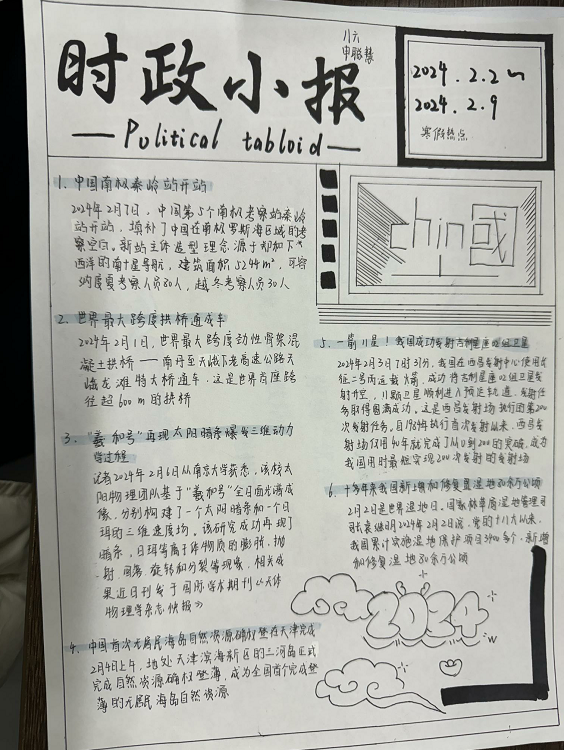 时政小报
八六
申聪慧
— Political tabloid —
2024.2.2～
2024.2.9
寒假热点
1. 中国南极秦岭站开站
2024年2月7日，中国第5个南极考察站秦岭
站开站，填补了中国在南极罗斯海区域的考
察空白。新站主体造型理念源于郑和下
西洋的南十星导航，建筑面积5244m²，可容
纳度夏考察人员80人，越冬考察人员30人
china国
2. 世界最大跨度拱桥通成车
2024年2月1日，世界最大跨度劲性骨架混
凝土拱桥——南丹至天峨下老高速公路天
峨龙滩特大桥通车，这是世界首座跨
径超600m的拱桥
3. "羲和号"再现太阳暗条爆发三维动力
学过程
记者2024年2月6日从南京大学获悉，该校太
阳物理团队基于"羲和号"全日面光谱成
像，分别构建了一个太阳暗条和一个日
珥的三维速度场。该研究成功再现了
暗条、日珥等离子体物质的膨胀、抛
射、回落、旋转和分裂等现象，相关成
果近日刊发于国际学术期刊《天体
物理学杂志快报》
4. 中国首次无居民海岛自然资源确权登在天津完成
2月4日上午，地处天津滨海新区的三河岛正式
完成自然资源确权登薄，成为全国首个完成登
薄的无居民海岛自然资源
5. 一箭11星！我国成功发射吉利星座02组卫星
2024年2月3日7时37分，我国在西昌发射中心使用长
征二号丙运载火箭，成功将吉利星座02组卫星发
射升空，11颗卫星顺利进入预定轨道，发射任
务取得圆满成功。这是西昌发射场执行的第200
次发射任务。自1984执行首次发射以来，西昌发
射场仅用40年就完成了从0到200的突破，成为
我国用时最短实现200次发射的发射场
6. 十多年来我国新上增和修复湿地80余万公顷
2月2日是世界湿地日。国家林草局湿地管理司
司长袁继明2024年2月2日说，党的十八大以来，
我国累计实施湿地保护项目3400多个，新增
和修复湿地80余万公顷
2024